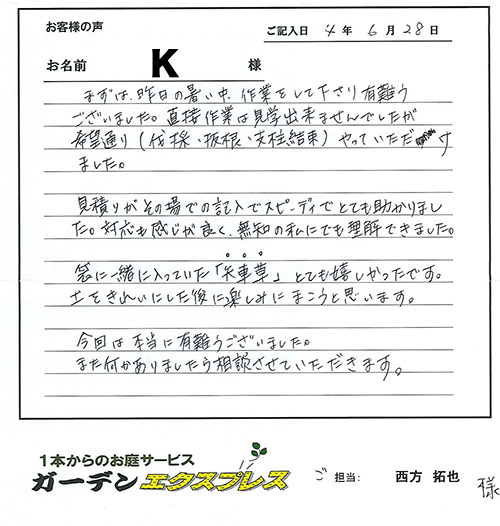 お客様の声
ご記入日 4年 6月 28日
お名前 K 様
まずは、昨日の暑い中、作業をして下さり有難う
ございました。直接作業は見学出来ませんでしたが
希望通り(伐採・抜根・支柱結束)やっていただけ
ました。
見積りがその場での記入でスピーディでとても助かりまし
た。対応も感じが良く、無知の私にでも理解できました。
袋に一緒に入っていた「矢車草」とても嬉しかったです。
土をきれいにした後に楽しみにまこうと思います。
今回は本当に有難うございました。
また何かありましたら相談させていただきます。
1本からのお庭サービス
ガーデンエクスプレス
ご担当: 西方 拓也 様